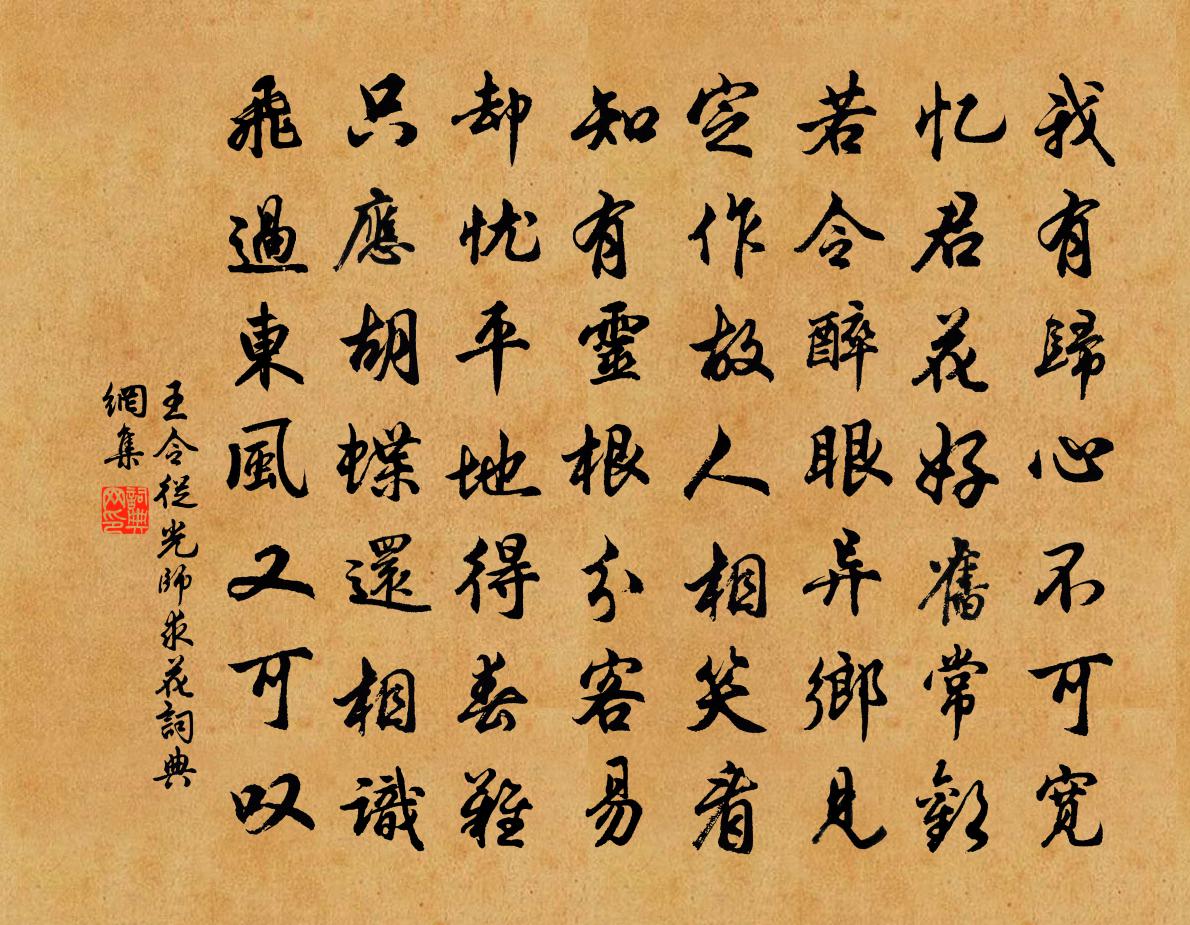 我有歸心不可寬
忆君花好舊常歡
若令醉眼异鄉見
定作故人相笑看
知有靈根分客易
却忧平地得春難
只應胡蝶還相識
飛過東風又可叹
王令從光師求花詞典
網集
詞典
网印